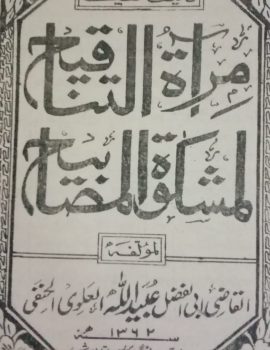 مرآة التناقيح
لمشكوة المصابيح
لمؤلفه
القاضي ابي الفضل عبيد الله العلوي الحنفي
سنة ١٣٦٢ هـ